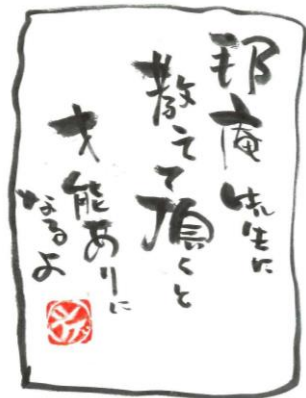 邦庵先生に
教えて頂くと
才能ありに
なるよ